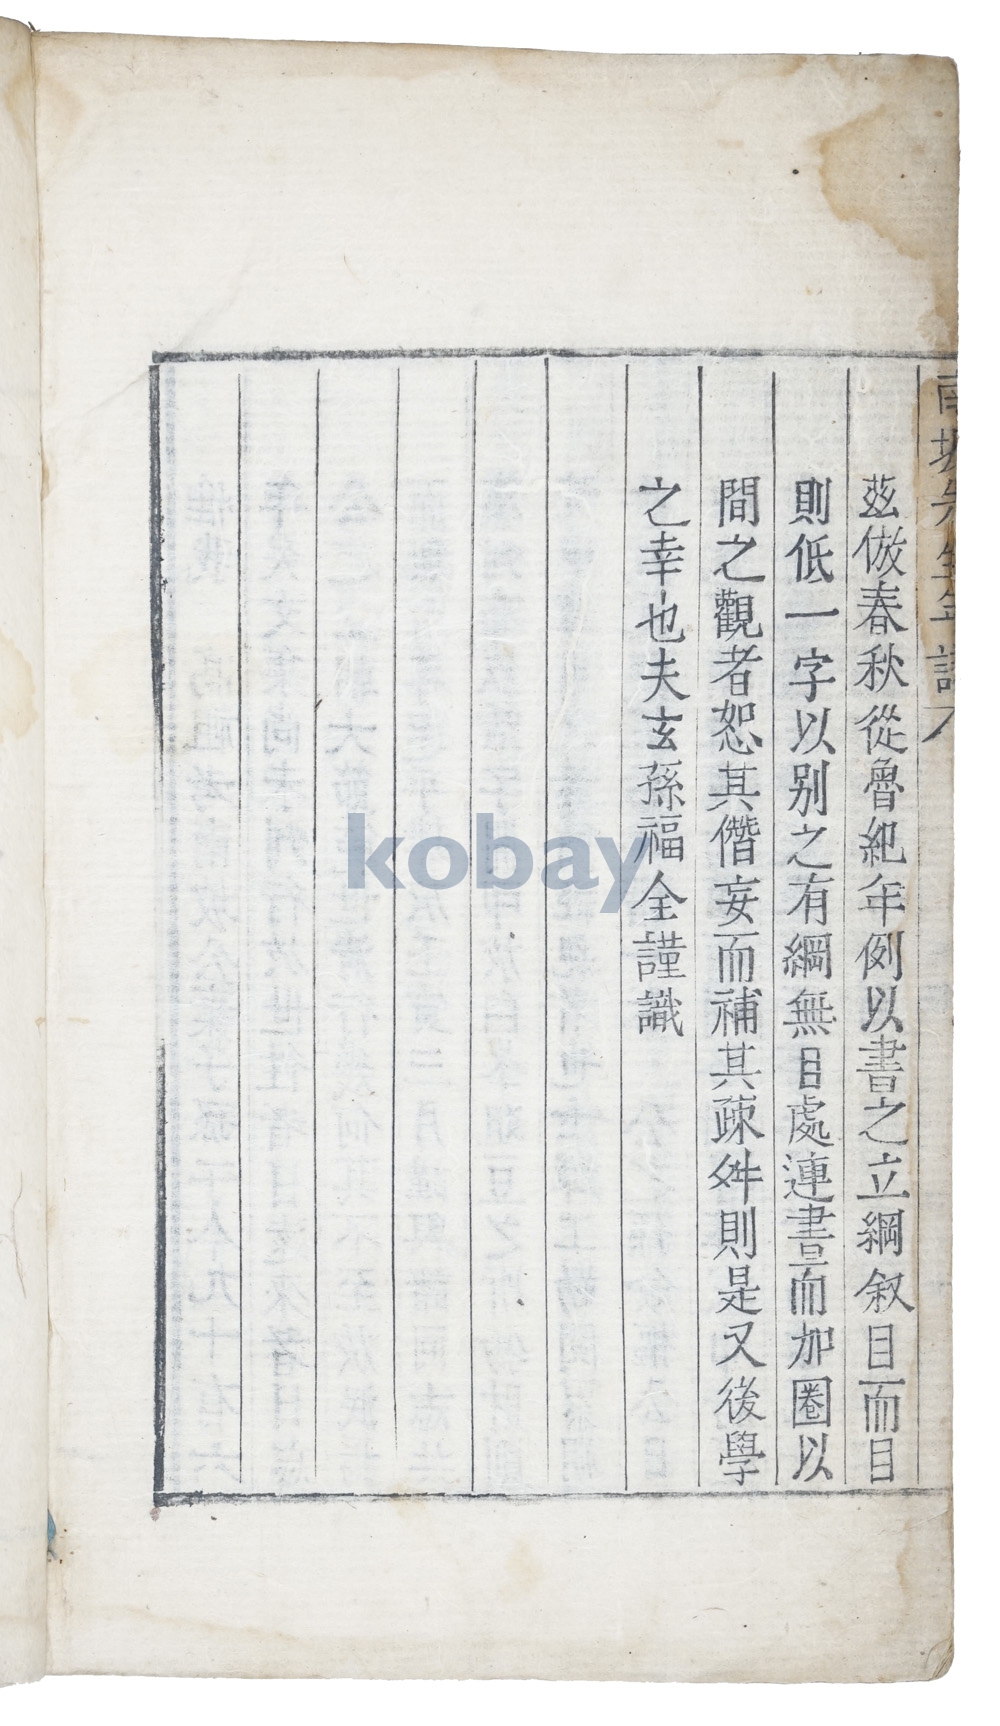 南坡先生年譜
茲倣春秋從魯紀年例以書之立綱叙目而目
則低一字以别之有綱無目處連書而加圈以
間之觀者恕其僭妄而補其疎舛則是又後學
之幸也夫玄孫福全謹識
kobay